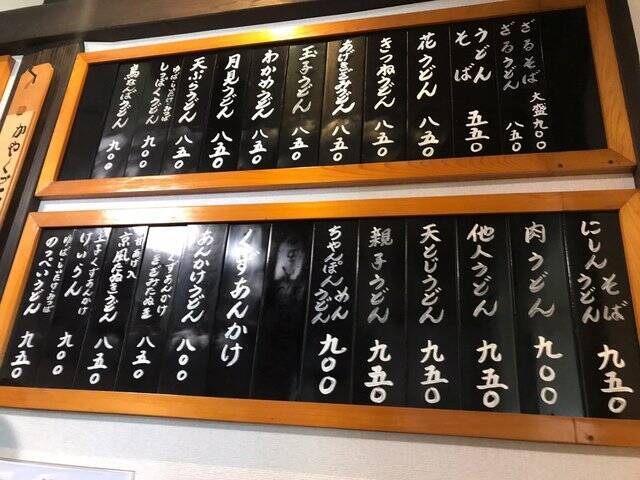 ざるそば 大盛九〇〇
ざるうどん 八五〇
うどん
そば 五五〇
花うどん 八五〇
きつねうどん 八五〇
あげきざみうどん 八五〇
玉子うどん 八五〇
わかめうどん 八五〇
月見うどん 八五〇
天ぷらうどん 八五〇
ゆば・しいたけ・みつば
しっぽくうどん 九〇〇
鳥なんばうどん 九〇〇
かやくご
にしん そば
うどん 九五〇
肉うどん 九〇〇
他人うどん 九五〇
天とじうどん 九五〇
親子うどん 九五〇
ちゃんぽん めん
うどん 九〇〇
くずあんかけ
あんかけうどん 八〇〇
くずあんかけ
きざみたぬき 八五〇
甘あげ入
京風たぬきうどん 八五〇
玉子くずあんかけ
けいらん 八五〇
ゆば・しいたけ・みつば 九〇〇
のっぺいうどん 九五〇